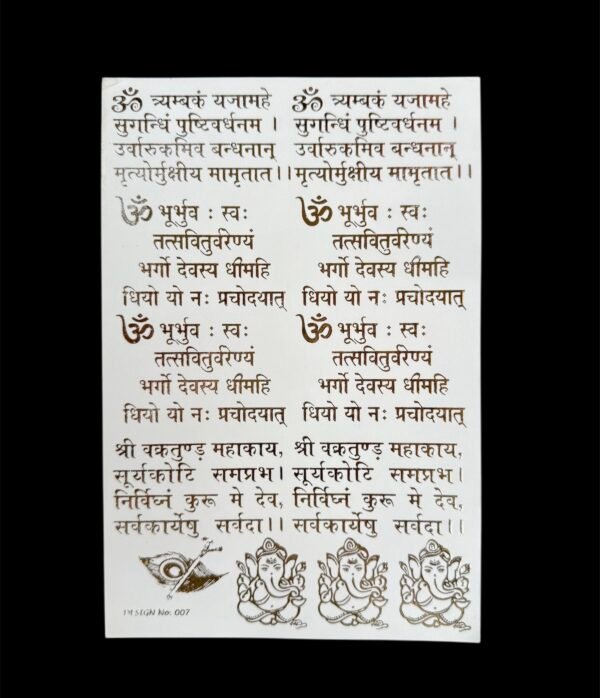 ॐ त्र्यम्बकं यजामहे
सुगन्धिं पुष्टिवर्धनम ।
उर्वारुकमिव बन्धनान्
मृत्योर्मुक्षीय मामृतात।।
ॐ त्र्यम्बकं यजामहे
सुगन्धिं पुष्टिवर्धनम ।
उर्वारुकमिव बन्धनान्
मृत्योर्मुक्षीय मामृतात।।
ॐ भूर्भुव : स्वः
तत्सवितुर्वरेण्यं
भर्गो देवस्य धीमहि
धियो यो नः प्रचोदयात्
ॐ भूर्भुव : स्वः
तत्सवितुर्वरेण्यं
भर्गो देवस्य धीमहि
धियो यो नः प्रचोदयात्
ॐ भूर्भुव : स्वः
तत्सवितुर्वरेण्यं
भर्गो देवस्य धीमहि
धियो यो नः प्रचोदयात्
ॐ भूर्भुव : स्वः
तत्सवितुर्वरेण्यं
भर्गो देवस्य धीमहि
धियो यो नः प्रचोदयात्
श्री वक्रतुण्ड महाकाय,
सूर्यकोटि समप्रभ।
निर्विघ्नं कुरू मे देव,
सर्वकार्येषु सर्वदा।।
श्री वक्रतुण्ड महाकाय,
सूर्यकोटि समप्रभ।
निर्विघ्नं कुरू मे देव,
सर्वकार्येषु सर्वदा।।
DESIGN No. 007